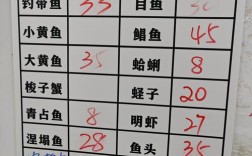 钓带鱼 33 目鱼
小黄鱼 鲳鱼 45
大黄鱼 35 蛤蜊 8
梭子蟹 蛏子 20
青占鱼 8 明虾 27
涅塌鱼 28 鱼头 35